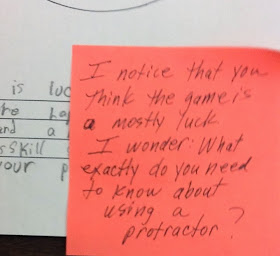 is luc
the
and a
skill
your p
I notice that you
think the game is
a mostly luck
I wonder: What
exactly do you need
to know about
using a
protractor?